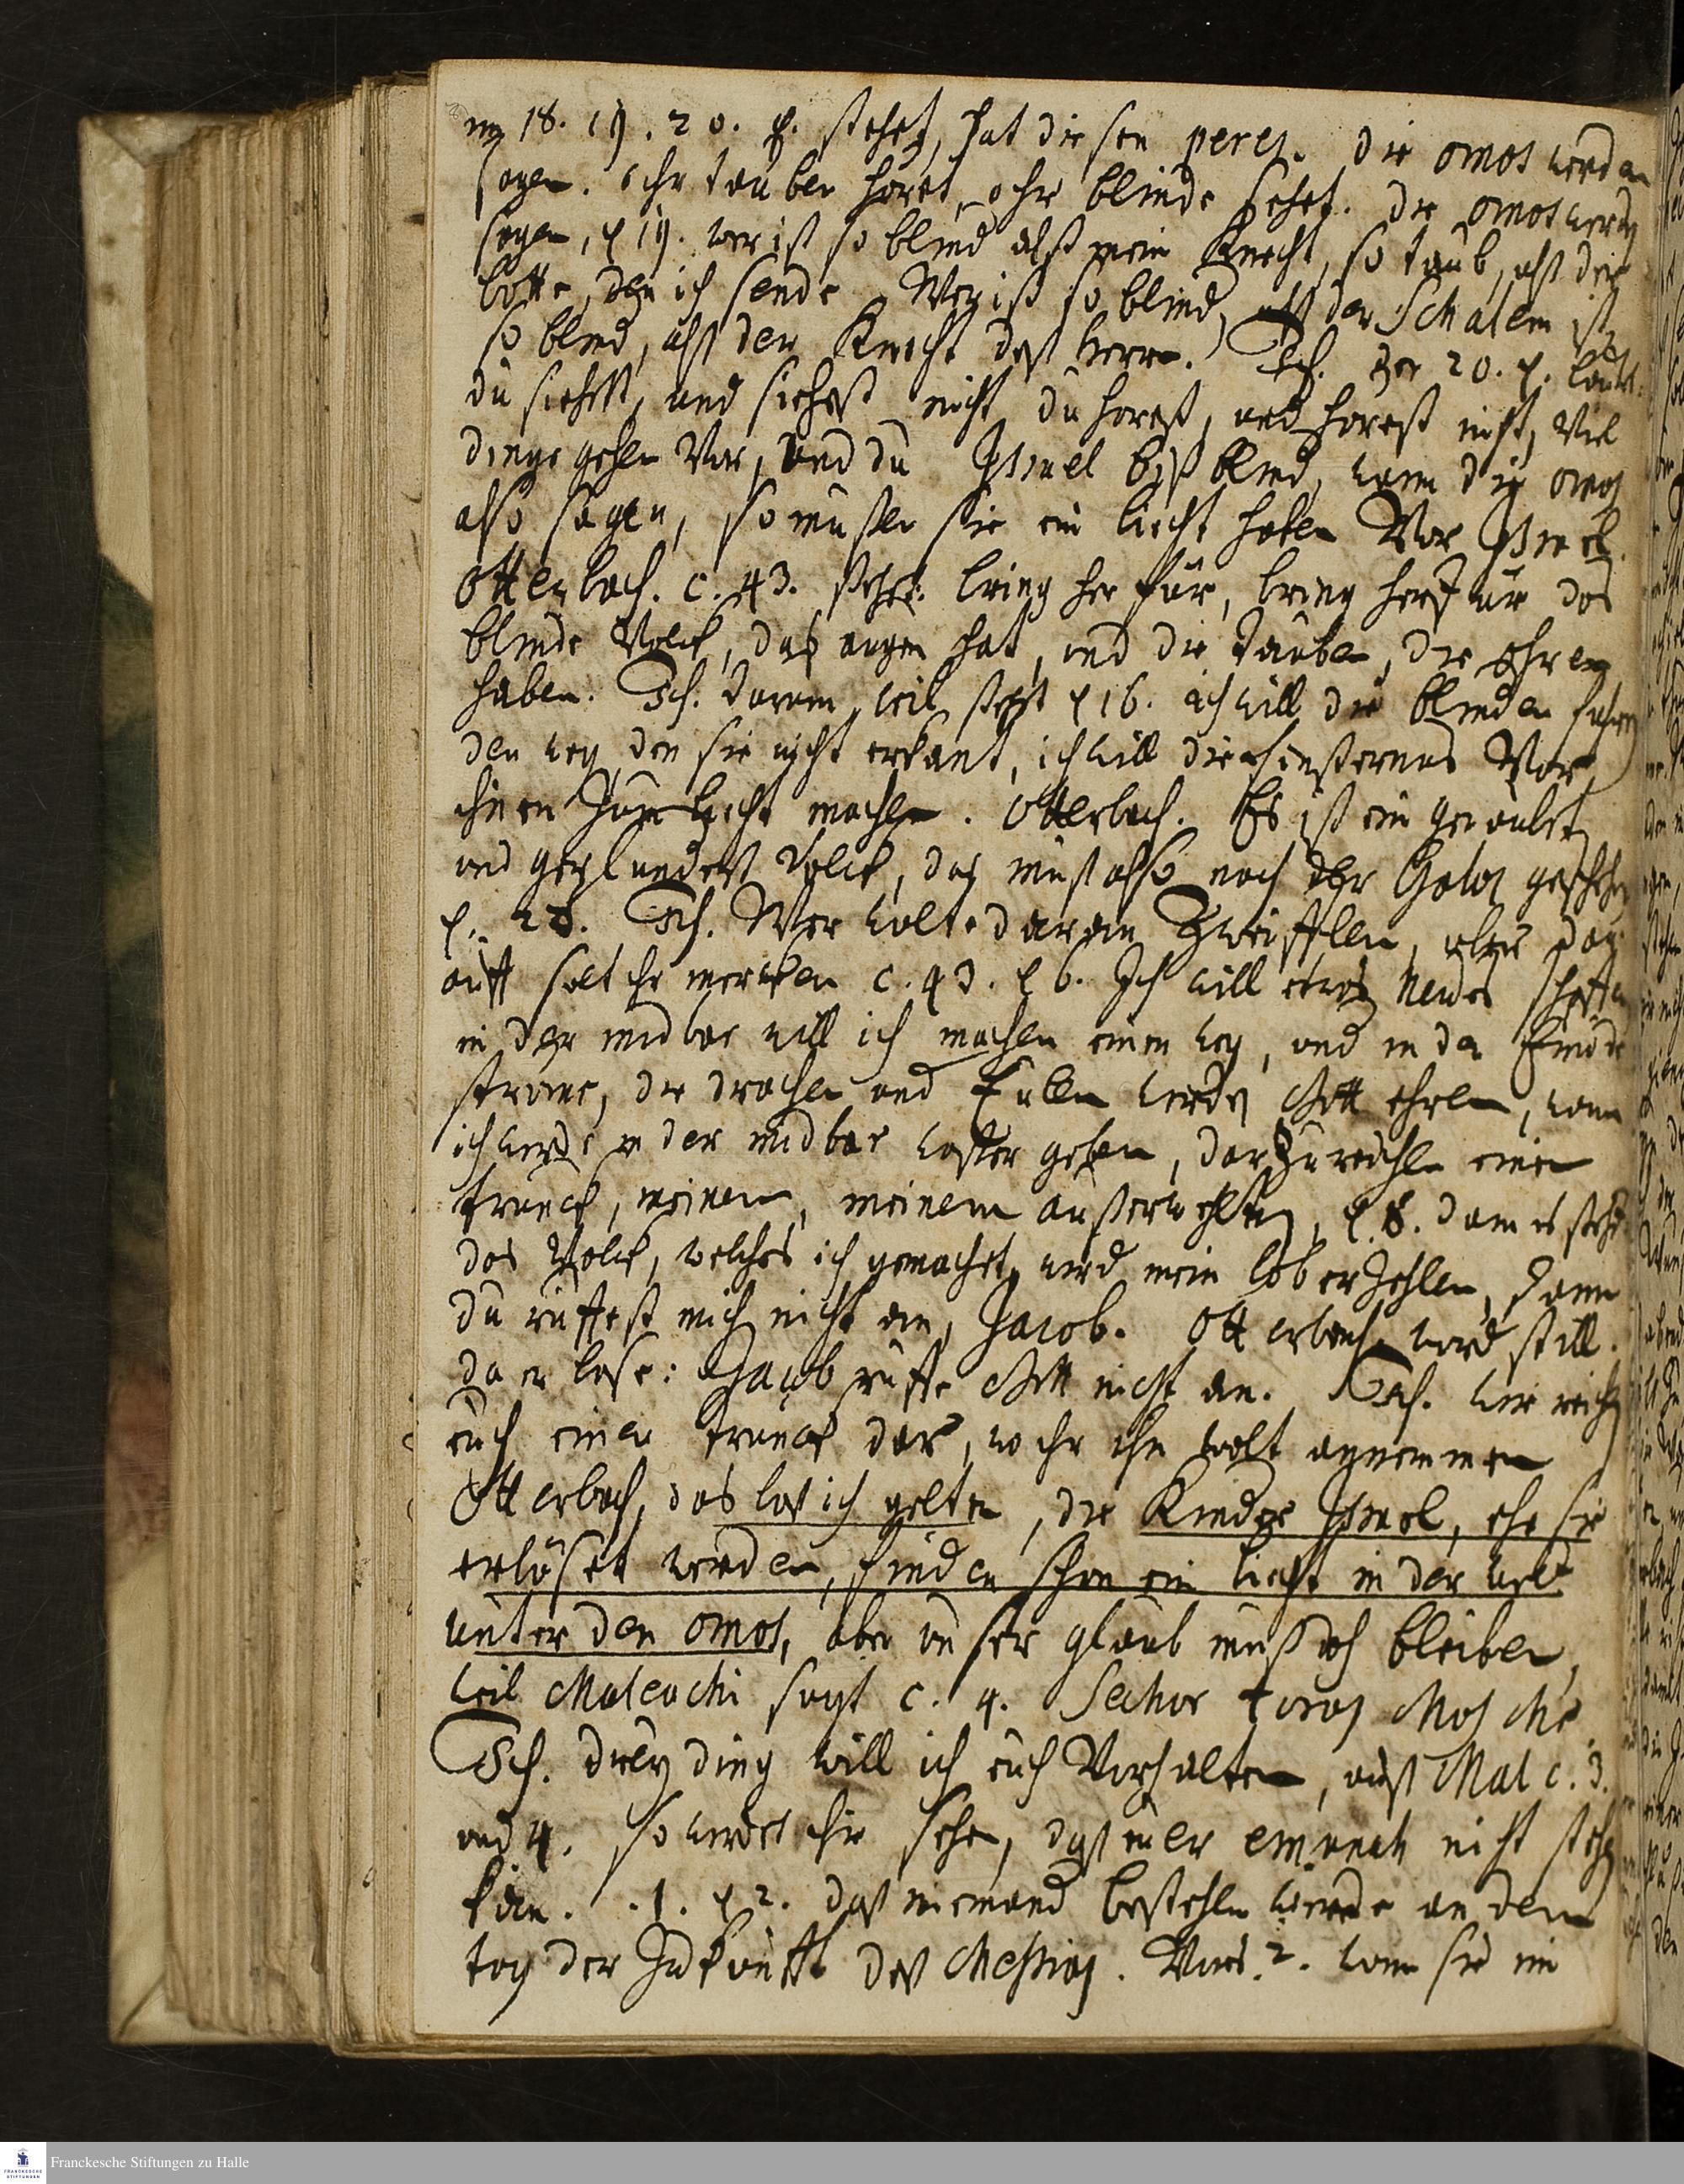 im 18. 19. 20. v. stehet, hat diesen perez. die omos werden
sagen. Ihr tauben höret, ihr blinde sehet. die omos werden
sagen, v 19. wer ist so blind alß mein Knecht, so taub, alß der
botte, den ich sende. Wer ist so blind, alß der Schalem ist
so blind, alß der Knecht deß herrn. Sch. der 20. v. lautet:
du siehest, und siehest nicht, du horest, und horest nicht, Viel
dinge gehen Vor, und du Israel bist blind, wann die omos
also sagen, so mussen sie ein liecht haben Vor Israel.
Otterbach. c. 43. stehet. bring her für, bring herfür das
blinde Volck, das augen hat, und die tauben, die ohren
haben. Sch. darum weil steht v 16. ich will die blinden fuhren
den weg, den sie nicht erkant, ich will die finsternus Vor
ihnen zum liecht machen. Otterbach. Es ist ein geraubet
und geplundert Volck, das muß also nach der Golos geschehen
v. 22. Sch. Wer wolte daran Zweifflen, aber dar
auff solt ihr mercken c. 43. v 6. Ich will etwas Neües schaffen
in der midbar will ich machen einen weg, und in der Einöde
ströme, die drachen und Eulen werden Gott ehren, wann
ich werde in der midbar wasser geben, darzureichen einen
trunck, meinem, meinem außerwehlten, v. 8. dann es stehet
das Volck, welches ich gemachet, wird mein lob erzehlen, dann
du ruffest mich nicht an, Jacob. Otterbach ward still.
da er lase: Jacob ruffe Gott nicht an. Sch. wir reichen
euch einen trunck dar, wo ihr ihn wolt annemmen
Otterbach, das laß ich gelten, die Kinder Israel, ehe sie
erlöset werden, finden schon ein liecht in der welt
unter den omos, aber unser glaub muß doch bleiben,
weil Maleachi sagt c. 4. Sechor toras Mosche.
Sch. drey ding will ich euch Vorhalten, auß Mal c. 3.
und 4. so werdet ihr sehen, daß euer emunah nicht stehen
kan. .1. v 2. daß niemand bestehen werde an dem
tag der Zukunfft deß Messias. Vors. 2. wann sie im
Franckesche Stiftungen zu Halle